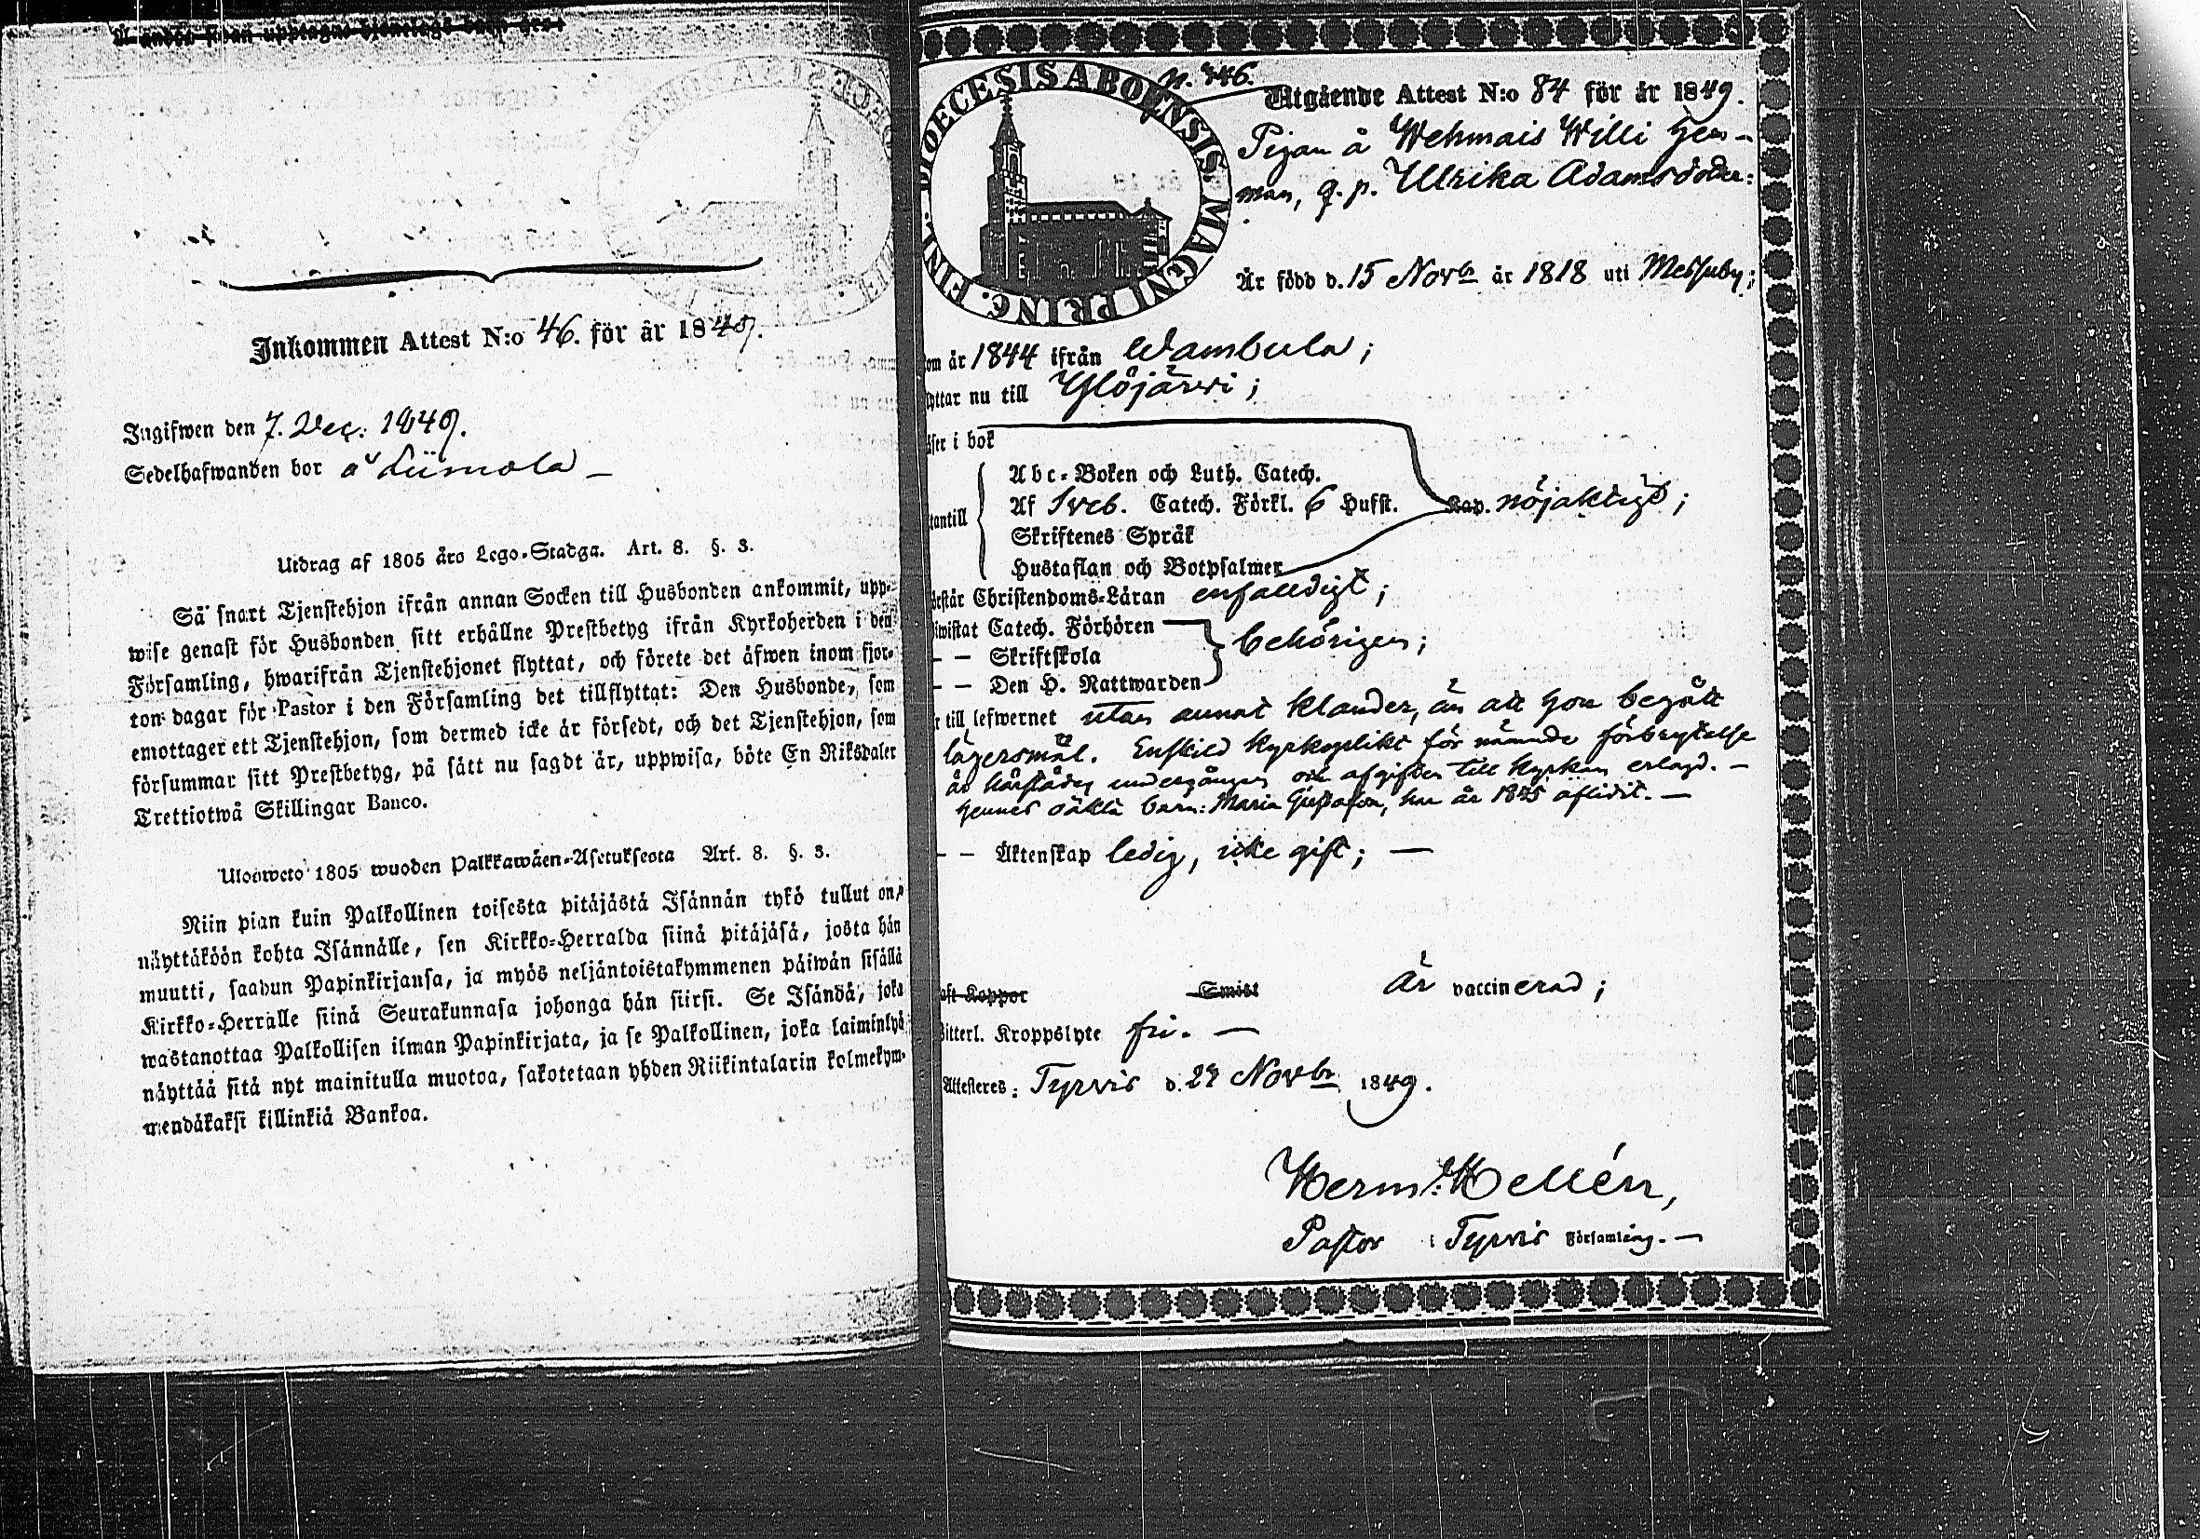 Inkommen Attest N:o 46. för år 1849.
Ingifwen den 7. Dec: 1849.
Sedelhafwanden bor å Liimola –
Utdrag af 1805 års Lego-Stadga. Art. 8. §. 3.
Så snart Tjenstehjon ifrån annan Socken till Husbonden ankommit, upp-
wise genast för Husbonden sitt erhållne Prestbetyg ifrån Kyrkoherden i den
Församling, hwarifrån Tjenstehjonet flyttat, och förete det äfwen inom fjor-
ton dagar för Pastor i den Församling det tillflyttat: Den Husbonde, som
emottager ett Tjenstehjon, som dermed icke är försedt, och det Tjenstehjon, som
försummar sitt Prestbetyg, på sätt nu sagdt är, uppwisa, böte En Riksdaler
Trettiotwå Skillingar Banco.
Ulosweto 1805 wuoden Palkkawäen-Asetuksesta Art. 8. §. 3.
Niin pian kuin Palkollinen toisesta pitäjästä Isännän tykö tullut on,
näyttäköön kohta Isännälle, sen Kirkko-Herralda siinä pitäjäsä, josta hän
muutti, saadun Papinkirjansa, ja myös neljäntoistakymmenen päiwän sisällä
Kirkko-Herralle siinä Seurakunnasa johonga hän siirsi. Se Isändä, joka
wastanottaa Palkollisen ilman Papinkirjata, ja se Palkollinen, joka laiminlyö
näyttää sitä nyt mainitulla muotoa, sakotetaan yhden Riikintalarin kolmekym-
mendäkaksi killinkiä Bankoa.
DIOECESIS ABOENSIS MAGNI PRINC. FINL.
N. 346.
Utgående Attest N:o 84 för år 1849.
Pigan å Wehmais Willi hem-
man, q. p. Ulrika Adamsdotter:
Är född d. 15 Novbr år 1818 uti Messuby;
om år 1844 ifrån Wambula;
yttar nu till Ylöjärwi;
äser i bok
Abc-Boken och Luth. Catech.
tantill Af Sveb. Catech. Förkl. 6 Hufst. Kap. nöjaktigt;
Skriftenes Språk
Hustaflan och Botpsalmer
örstår Christendoms-Läran enfaldigt;
iwistat Catech. Förhören
– – Skriftskola behörigen;
– – Den H. Nattwarden
r till lefwernet utan annat klander, än att hon begått
lägersmål. Enskild kyrkoplikt för nämnde förbrytelse
är härstädes undergången och afgiften till kyrkan erlagd. –
Hennes oäkta barn: Maria Gustafva, har år 1845 aflidit. –
– – Äktenskap ledig, icke gift; –
aft Koppor Smist Är vaccinerad;
itterl. Kroppslyte fri. –
Attesteres: Tyrvis d. 27 Novbr 1849.
Herm: Hellén,
Pastor i Tyrvis Församling. –